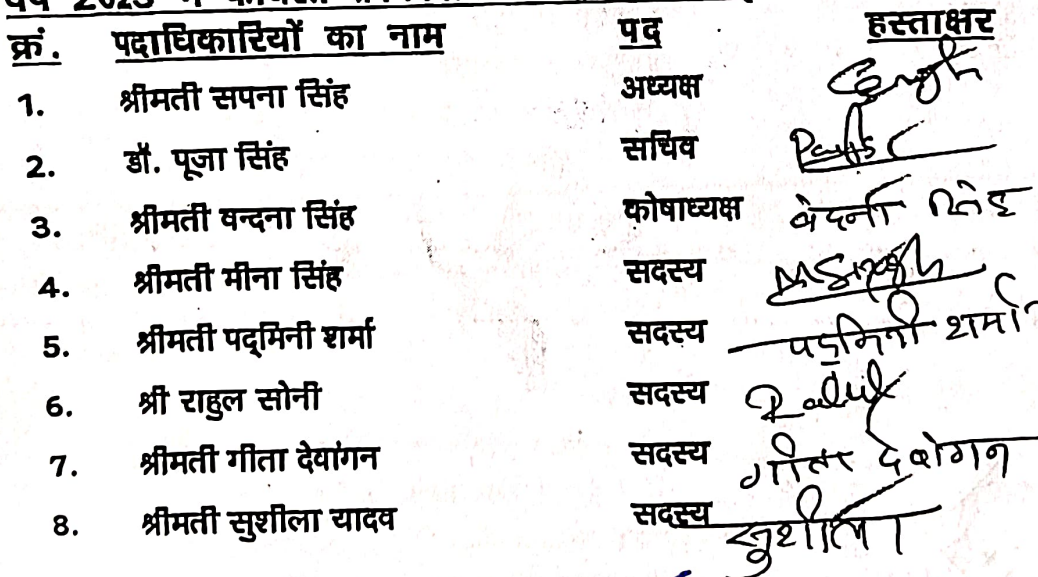 वर्ष 2023 में
क्रं. पदाधिकारियों का नाम पद हस्ताक्षर
1. श्रीमती सपना सिंह अध्यक्ष Singh
2. डॉ. पूजा सिंह सचिव
3. श्रीमती वन्दना सिंह कोषाध्यक्ष
4. श्रीमती मीना सिंह सदस्य MSingh
5. श्रीमती पद्मिनी शर्मा सदस्य पद्मिनी शर्मा
6. श्री राहुल सोनी सदस्य Rahul
7. श्रीमती गीता देवांगन सदस्य गीता देवांगन
8. श्रीमती सुशीला यादव सदस्य सुशीला